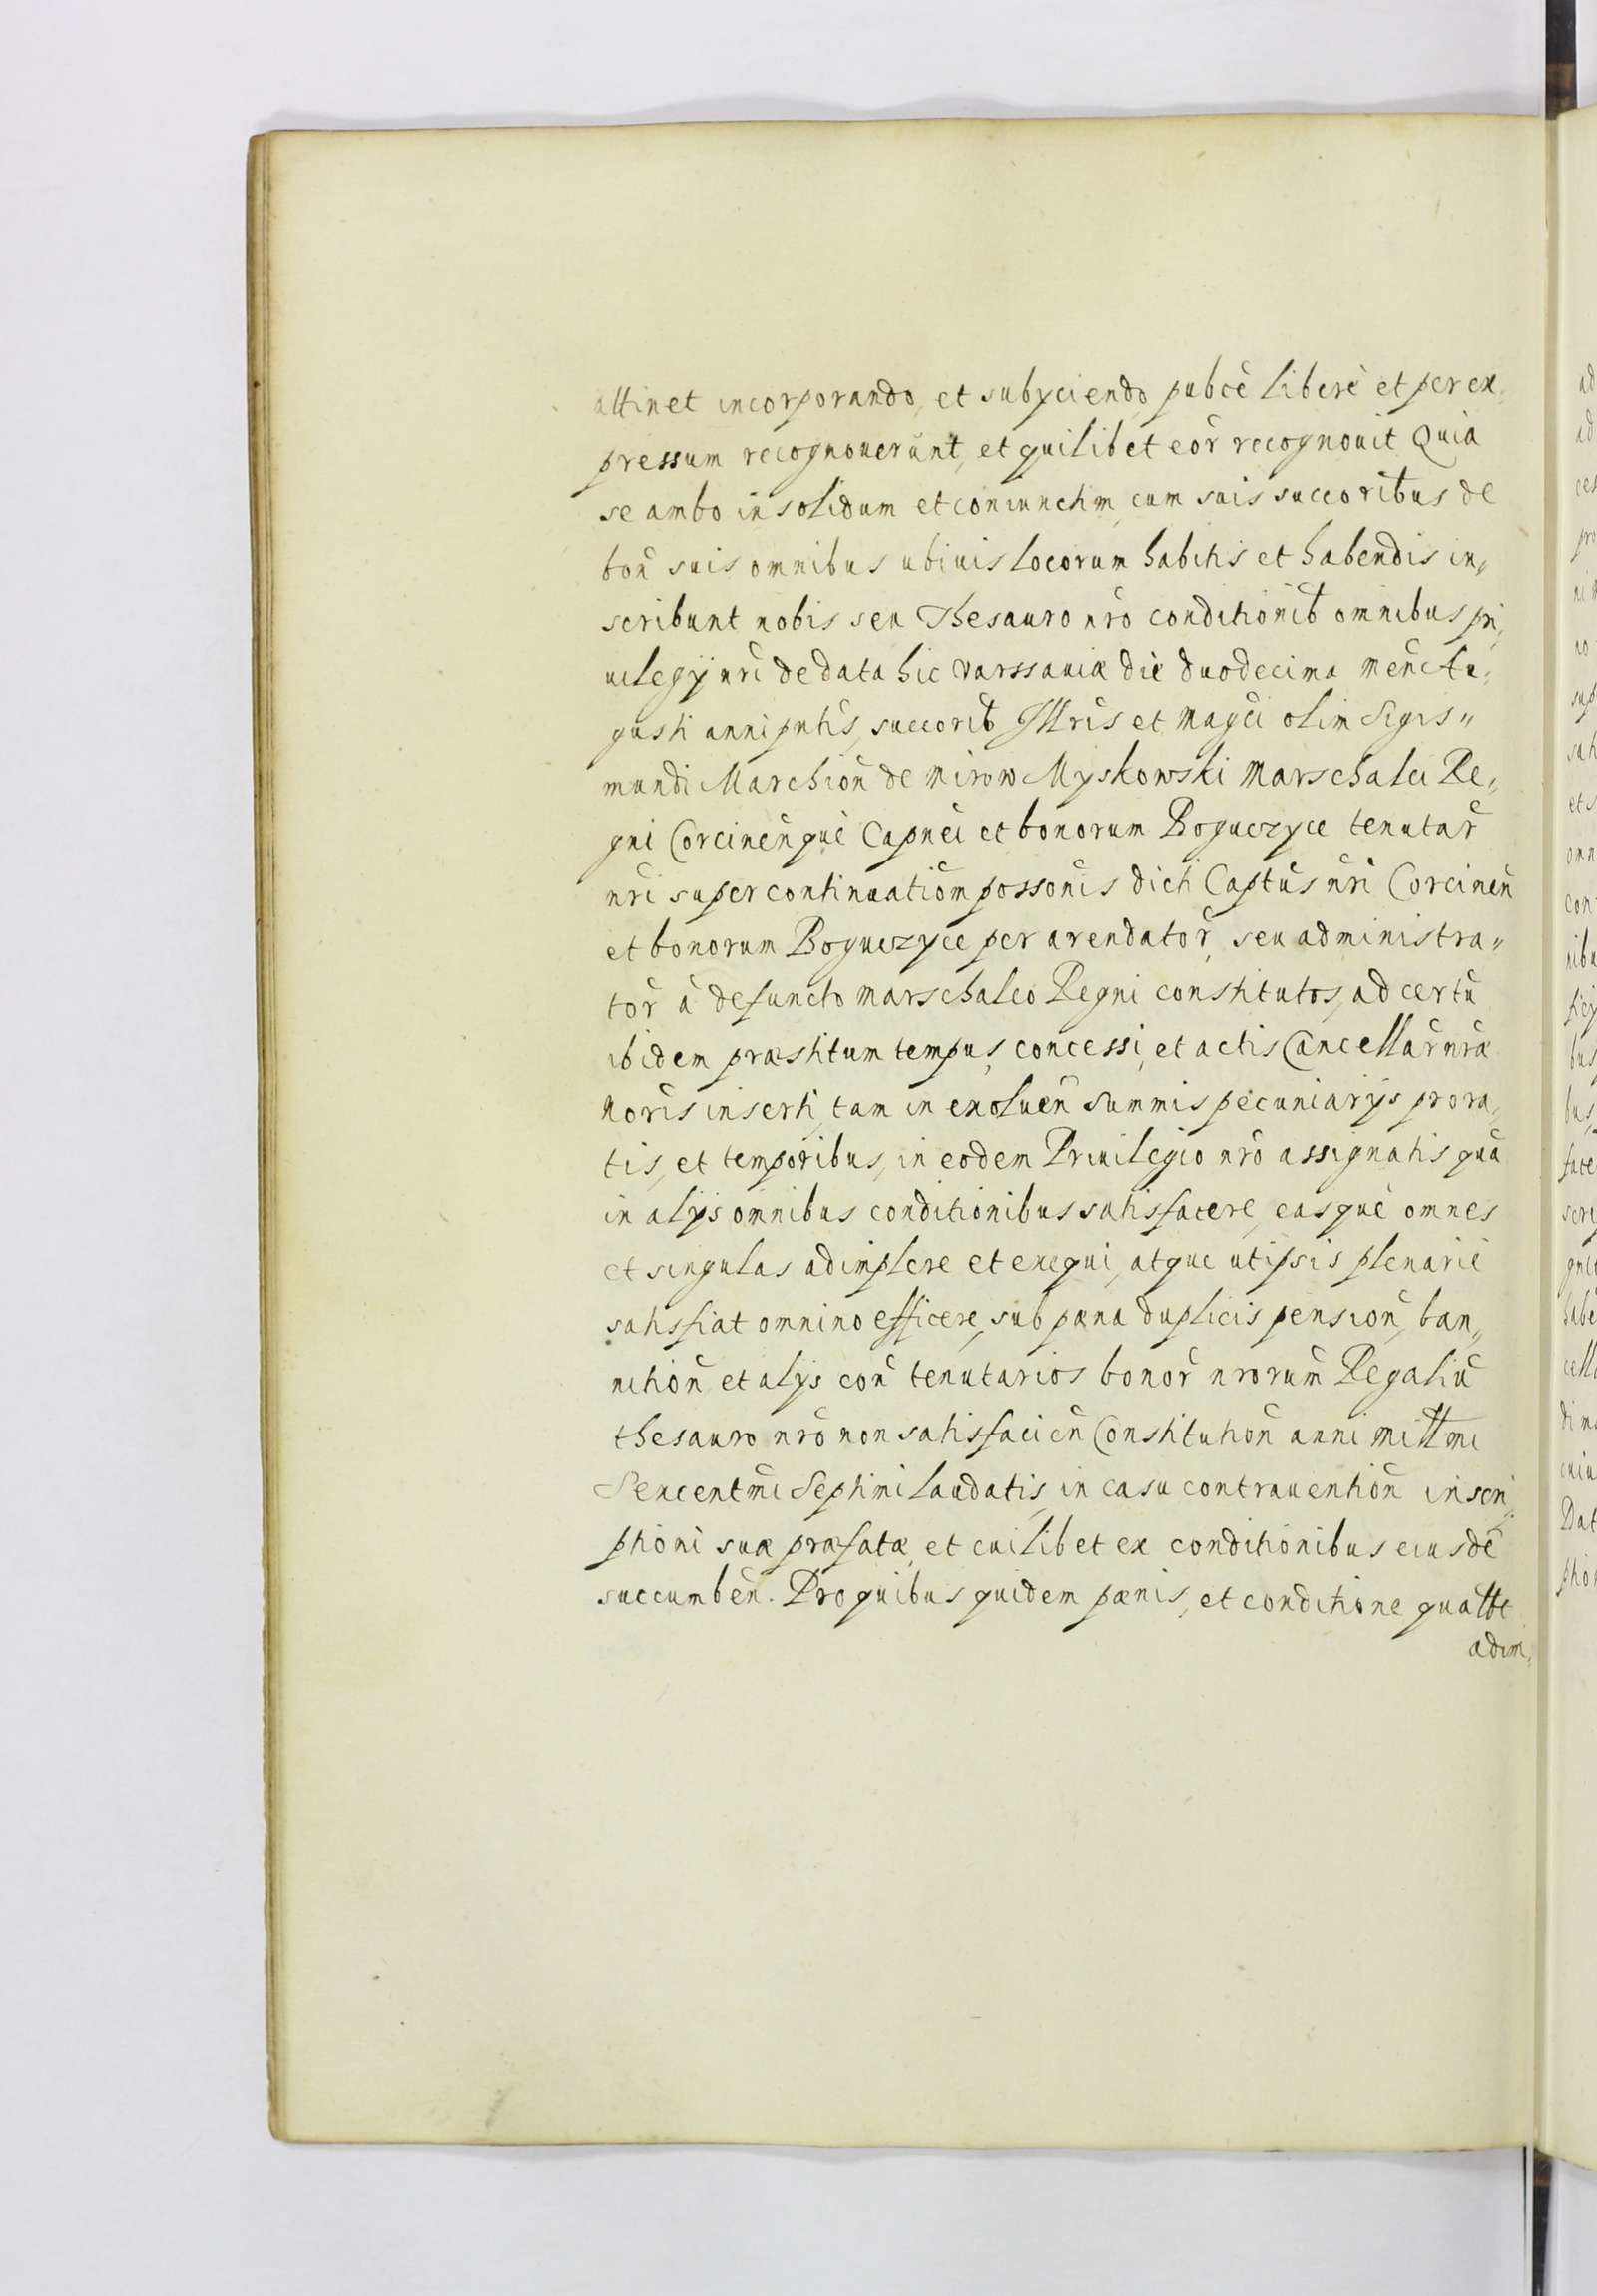 attinet incorporando, et subÿciendo, pubcè liberè et per ex„
pressum recognouerunt, et quilibet eor̃ recognouit Quia
se ambo in solidum et coniunctim, cum suis succoribus de
boñ suis omnibus ubiuis locorum habitis et habendis in„
scribunt nobis seu Thesauro nr̃o conditionib̃ omnibus pri„
uilegÿ nr̃i de data hic Varssauiæ die duodecima meñc Au„
gusti anni pñtis, succorib̃ Jllr̃is et Magc̃i olim Sigis„
mundi Marchioñ de Mirow Myskowski Marschalci Re„
gni Corcineñ què Capnei et bonorum Boguczyce tenutar̃
nr̃i super continuatiõm possoñis dicti Captũs nr̃i Corcineñ
et bonorum Boguczyce per arendator̃, seu administra„
tor̃ à defuncto Marschalco Regni constitutos, ad certũ
ibidem præstitum tempus, concessi, et actis Cancellar̃ nr̃æ
Noris inserti, tam in exolueñ summis pecuniarÿs pro ra„
tis, et temporibus, in eodem Priuilegio nr̃o assignatis quã
in alÿs omnibus conditionibus satisfacere, easquè omnes
et singulas adimplere et exequi, atque ut ipsis plenariè
satisfiat omnino efficere, sub pæna duplicis pensioñ, ban„
nitioñ et alÿs coñ tenutarios bonor̃ nrorum̃ Regaliũ
thesauro nr̃o non satisfacieñ Constitutioñ anni Millmi
Sexcentm̃i Septimi laudatis, in casu contrauentioñ inscri„
ptioni suæ præfatæ, et cuilibet ex conditionibus eiusdẽ
succumbeñ. Pro quibus quidem pænis, et conditione qualbt
adim„